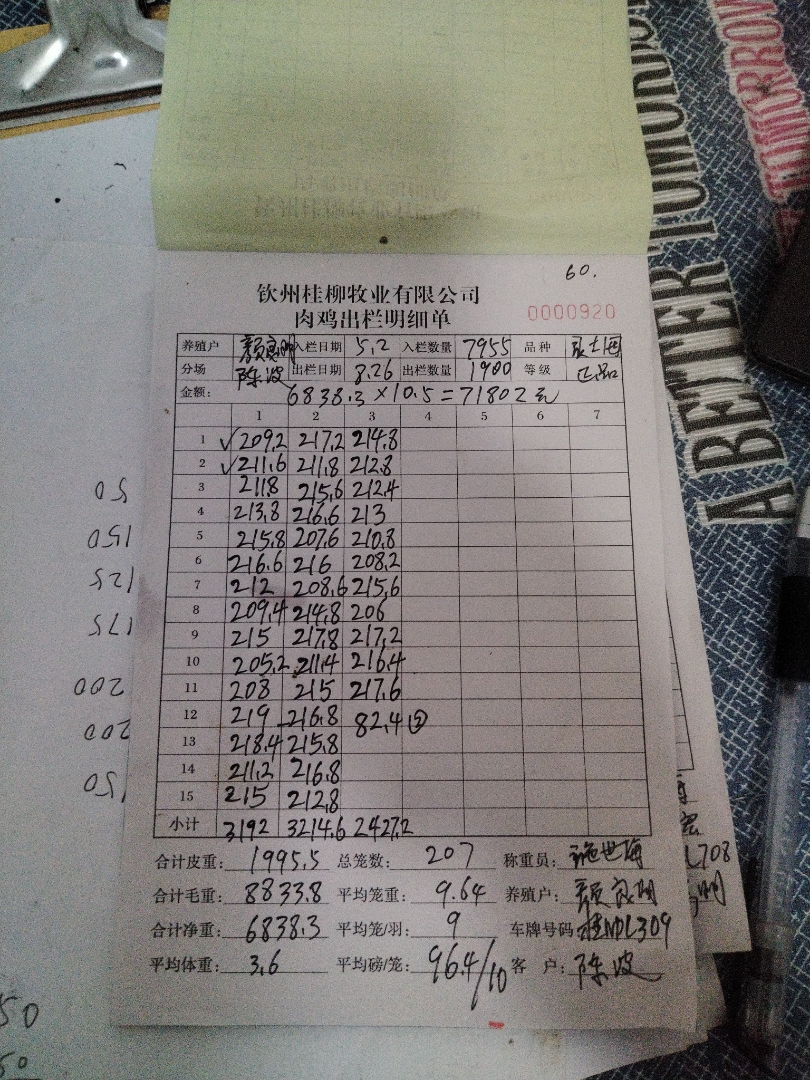 A BETTER TOMORROW
TOMORROW
60.
钦州桂柳牧业有限公司
肉鸡出栏明细单 0000920
养殖户 颜良明 入栏日期 5.2 入栏数量 7955 品种
分场 陈波 出栏日期 8.26 出栏数量 1900 等级 正品
金额: 6838.3×10.5=71802元
1 2 3 4 5 6 7
1 √209.2 217.2 214.8
2 √211.6 211.8 212.8
3 211.8 215.6 212.4
4 213.8 216.6 213
5 215.8 207.6 210.8
6 216.6 216 208.2
7 212 208.6 215.6
8 209.4 214.8 206
9 215 217.8 217.2
10 205.2 211.4 216.4
11 208 215 217.6
12 219 216.8 82.4⑤
13 218.4 215.8
14 211.2 216.8
15 215 212.8
小计 3192 3214.6 2427.2
合计皮重: 1995.5 总笼数: 207 称重员: 施世海
合计毛重: 8833.8 平均笼重: 9.64 养殖户: 颜良明
合计净重: 6838.3 平均笼/羽: 9 车牌号码 桂NDL309
平均体重: 3.6 平均磅/笼: 96.4/10 客 户: 陈波
L708
明
50
150
125
175
200
200
150
50
50